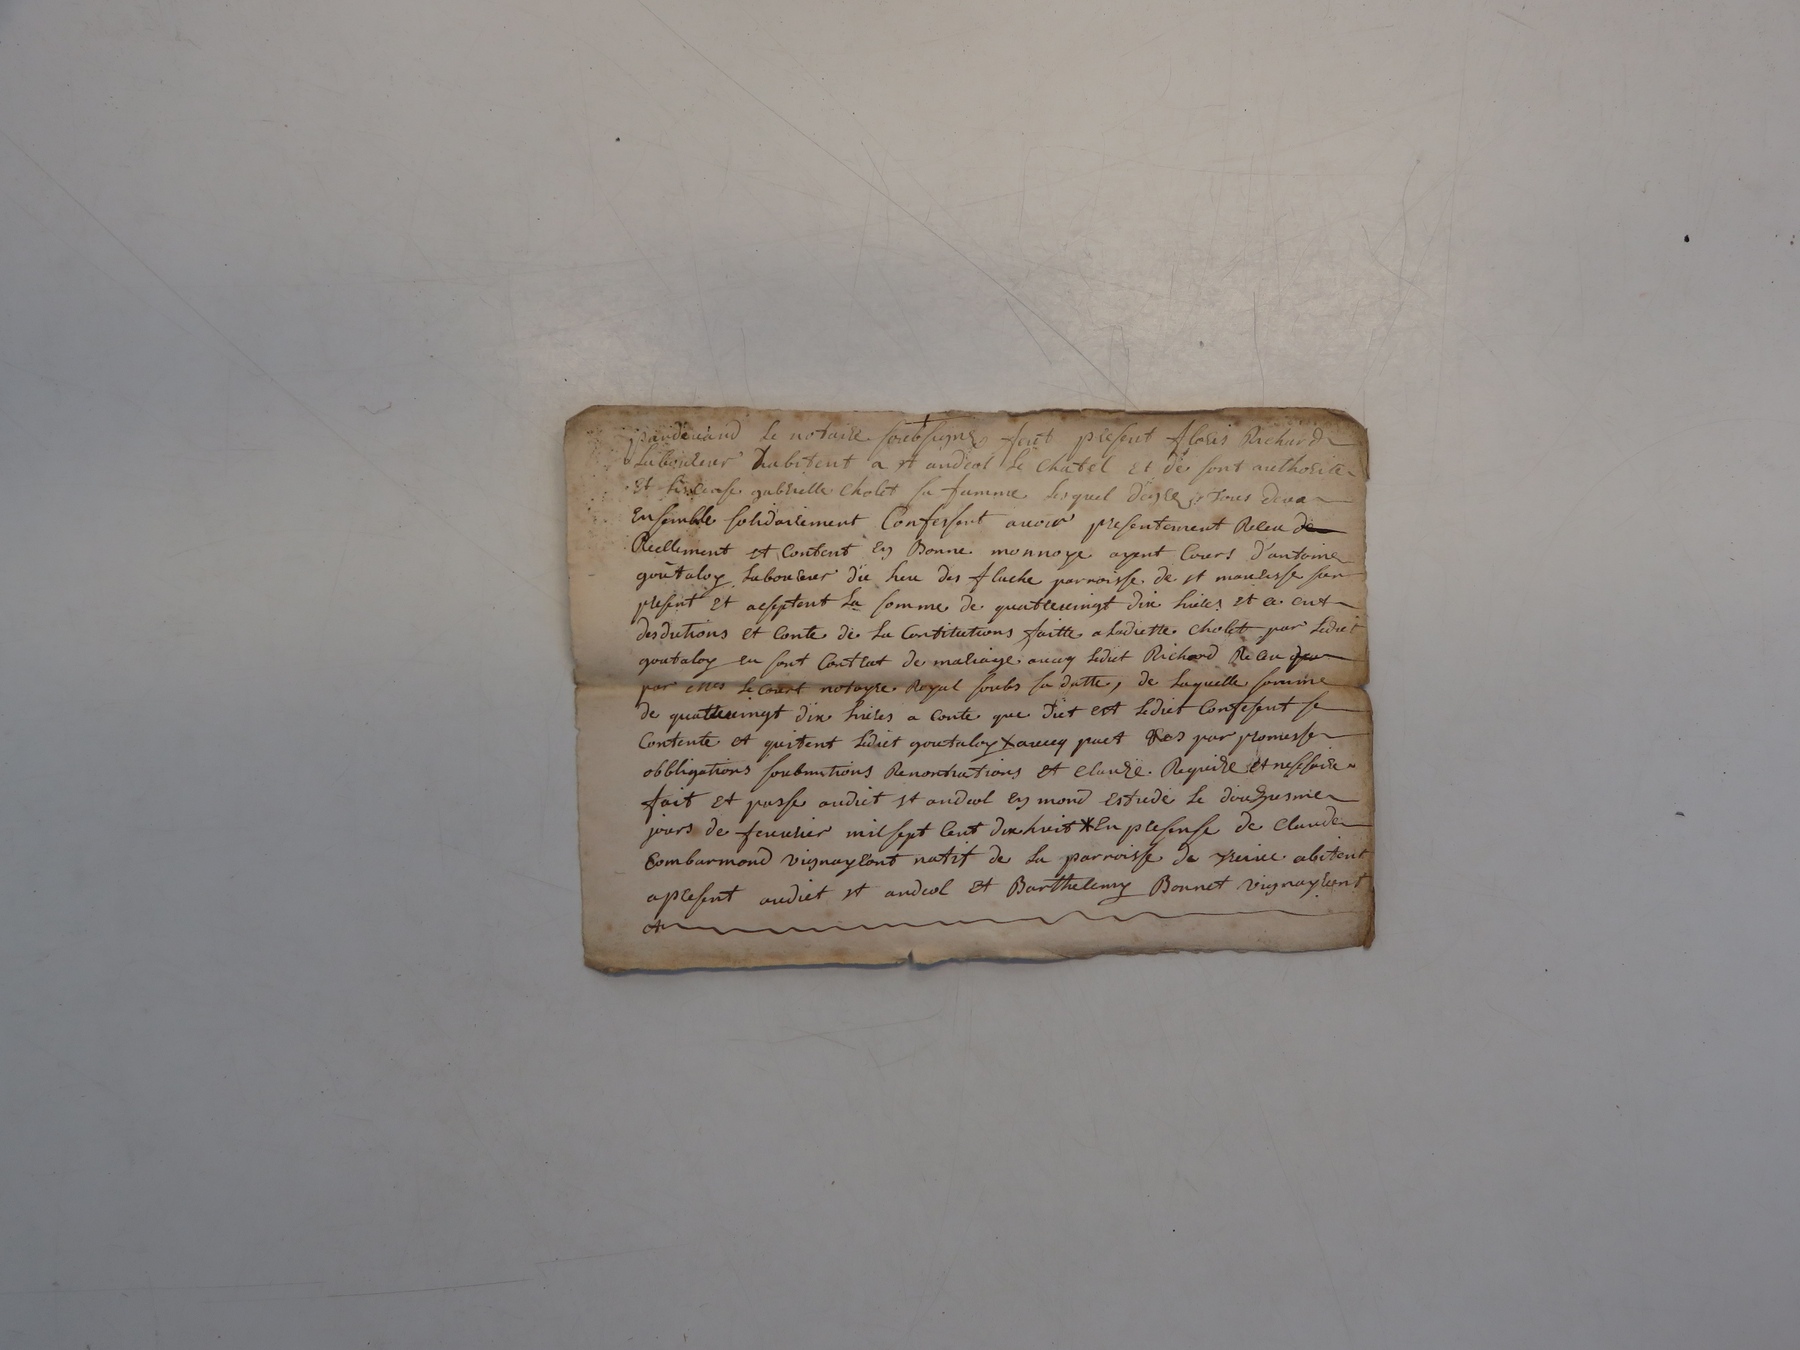 pardevand le notaire soubsigne fut present floris Richard
Laboureur habitent a st andeol le chatel et de sont authorite
et gabrielle cholet sa famme lesquel d'eux tous deux
ensemble solidairement Confessent avoir presentement Receu de
Reellement et Content en Bonne monnoye ayent Cours d'antoine
goutaloy Laboureur du lieu des flache parroisse de st maurisse sur
present et aceptent la somme de quatrevingt dix livres et ce ent
desdutions et Conte de la Constitutions faitte a ladiette cholet par lediet
goutaloy en sont Contrat de mariage avecq lediet Richard Receu
par mes Lecourt notayre Royal soubs sa datte, de laquelle somme
de quatrevingt dix livres a conte que diet est lediet Confesent se
Contente et quitent lediet goutaloy x avecq pact par promesse
obbligations soubmitions Renontiations et clauze Requize et nessaire
fait et passe audiet st andeol en mond estude le douzyesme
jours de fevurier mil sept Cent dix huit x En presense de claude
Combarmond vignayront natif de la parroisse de abitent
apresent audiet st andeol et Barthelemy Bonnet vignayront
et